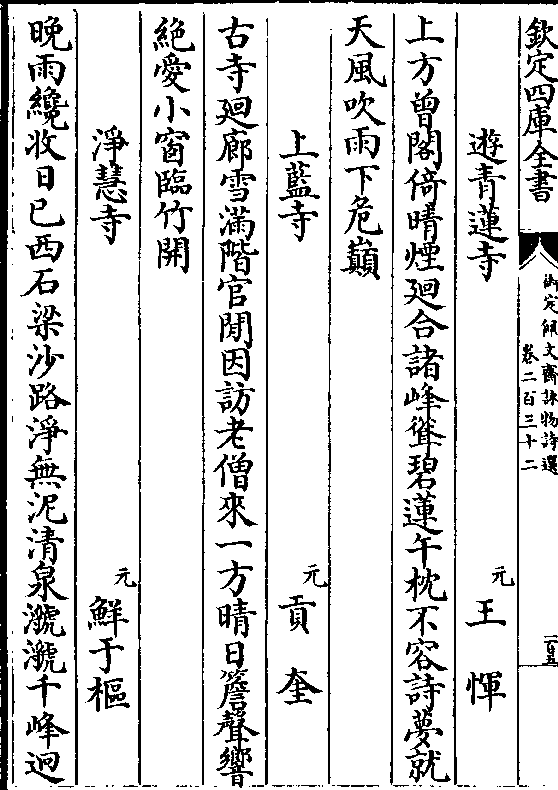 欽定四庫全書
御定佩文齋詠物詩選
卷二百三十二
一百五
遊青蓮寺 元 王惲
上方曾閣倚晴煙廻合諸峰聳碧蓮午枕不容詩夢就
天風吹雨下危巔
上藍寺 元 貢奎
古寺廻廊雪滿階官閒因訪老僧來一方晴日簷聲響
絕愛小窗臨竹開
淨慧寺 元 鮮于樞
晚雨纔收日已西石梁沙路淨無泥清泉㶁㶁千峰迥